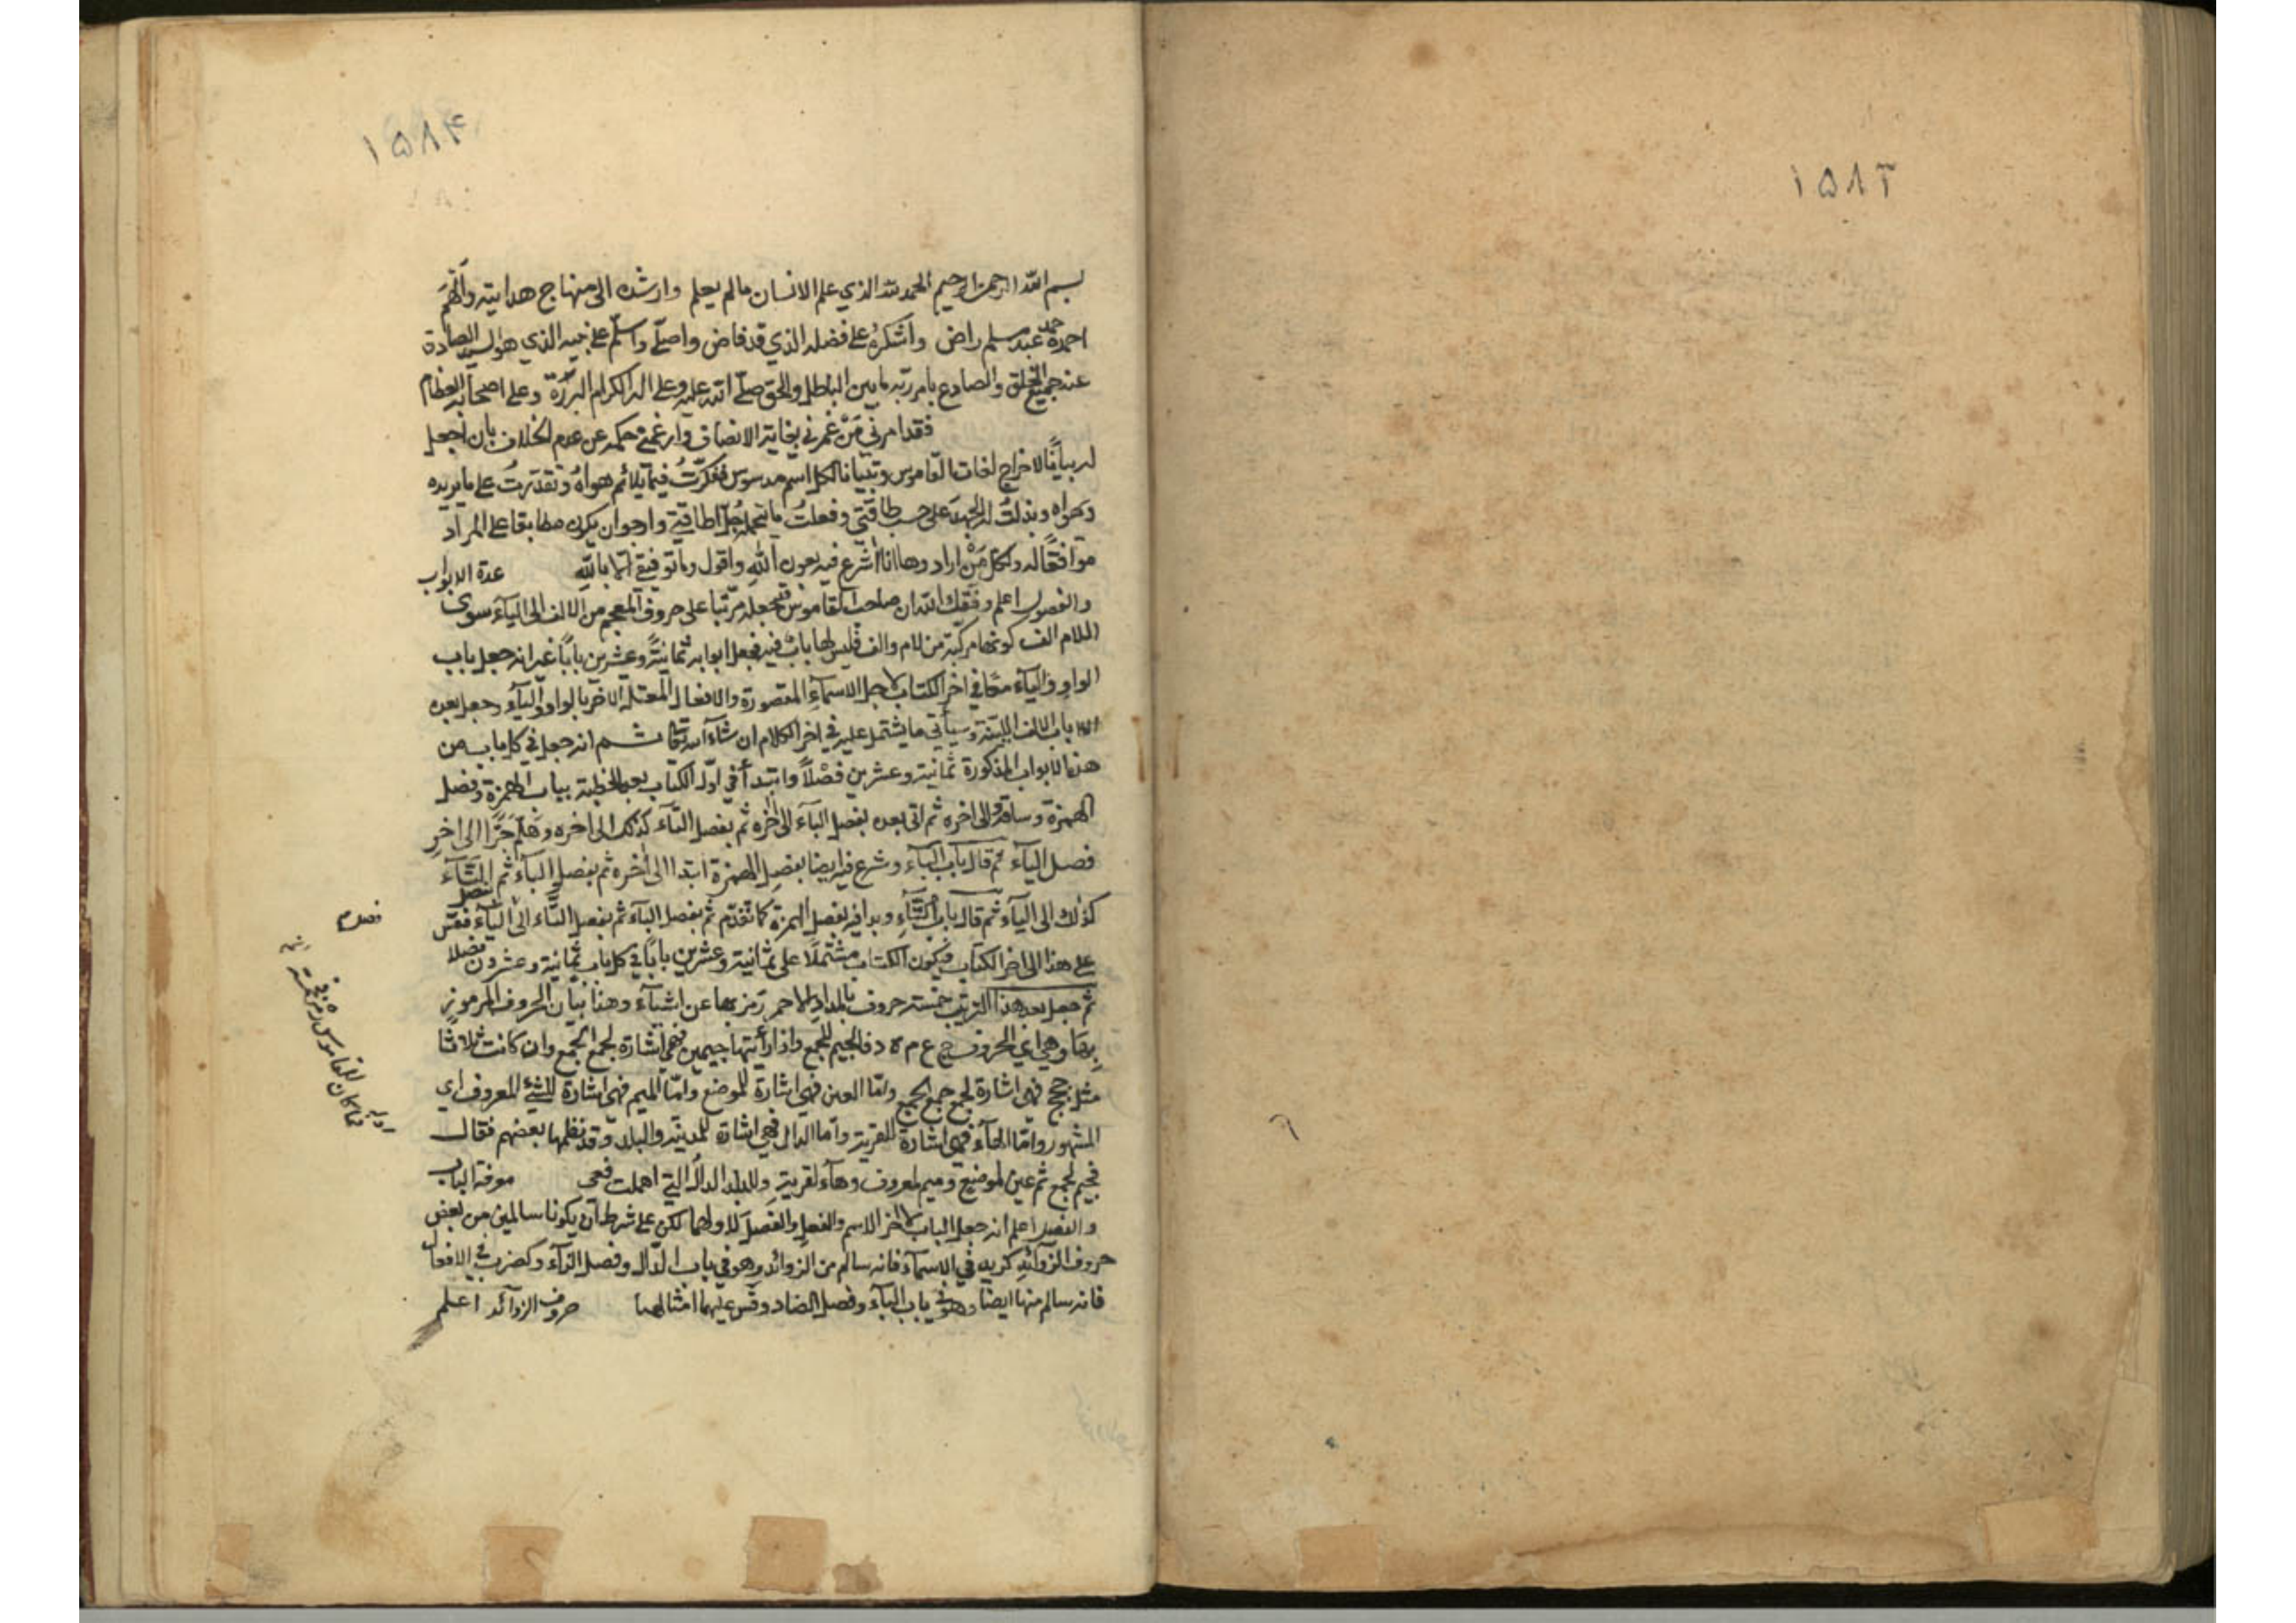 ١٥٨٣
١٥٨٤
بسم الله الرحمن الرحيم الحمد لله الذي علم الانسان مالم يعلم وارشده الى منهاج هدايته والهم
احمده حمد عبد مسلم راض واشكره على فضله الذي قد فاض واصلي واسلم على نبيه الذي هو السيد
عند جميع الخلق والصادع بامر ربه ما بين الباطل والحق صلى الله عليه وعلى اله الكرام البررة وعلى اصحابه العظام
فقد امرني مَنْ غمرني بغاية الانصاف حكمه عن عدم الخلاف بان اجعل
له بياناً لاخراج لغات القاموس وتبيانا لكل اسم مدسوس ففكرتُ فيما يلائم هواهُ وتقدرتُ على ما يريده
ويهواه وبذلتُ له الجهدَ على حسب طاقتي وفعلتُ ما تحمله جُلّ اطاقتي وارجو ان يكون مطابقا على المراد
موافقًا له ولكل مَنْ اراد وها انا اشرع فيه بعون اللهِ واقول وما توفيقي الا باللهِ عدة الابواب
والفصول اعلم وفقك الله ان صاحب القاموس جعله مرتبا على حروف المعجم من الالف الى الياء سوى
اللام الف كونها مركبة من لام والف فليس لها بابٌ فيه فجعل ابوابه ثمانيةً وعشرين بابًا غير انه جعل باب
الواو والياء معًا في اخر الكتاب لاجل الاسماءِ المقصورة والافعال المعتلة الاخر بالواو والياء وجعل بعده
باب الالف اللينة وسياتي ما يشتمل عليه في اخر الكلام ان شاء الله تعالى ثم انه جعل في كل باب من
هذه الابواب المذكورة ثمانية وعشرين فصْلاً وابتدأ في اول الكتاب بعد الخطبة بباب الهمزة وفصل
الهمزة وساقه الى اخره ثم اتى بعده بفصل الباء الى اخره ثم بفصل التاء كذلك الى اخره وهلم جَرًّا الى اخرِ
فصل الياء ثم قال باب الباء وشرع فيه ايضا بفصل الهمزة ابتدا الى اخره ثم بفصل الباء ثم بفصل التاء
كذلك الى الياء ثم قال باب التاءِ وبدا فيه بفصل الهمزة كما تقدم ثم بفصل الباء ثم بفصل التاء الى الياء فقس
على هذا الى اخر الكتاب فيكون الكتاب مشتملًا على ثمانية وعشرين بابًا في كل باب ثمانية وعشرون فصلا
ثم جعل بعد هذا الترتيب خمسة حروف بالمداد الاحمر رَمز بها عن اشياء وهذا بيان الحروف المرموز
بها وهي اي الحروف ج ع م ة د فالجيم للجمع واذا رأيتها جيمين فهي اشارة لجمع الجمع وان كانت ثلاثًا
مثل ججج فهي اشارة لجمع جمع الجمع واما العين فهي اشارة للموضع وامّا الميم فهي اشارة للشئ المعروف اي
المشهور وامّا الهاء فهي اشارة للقرية وامّا الدال فهي اشارة للمدينة والبلد وقد نظمها بعضهم فقال
فجيم لجمع ثم عين لموضع وميم لمعروف وهاء لقرية وللبلد الدالُ التي اهملت فعي معرفة الباب
والفصل اعلم انه جعل الباب لاخر الاسم والفعل والفصل لاولهما لكن على شرط ان يكونا سالمين من بعض
حروف الزوائد كزيد في الاسماء فانه سالم من الزوائد وهو في باب الدال وفصل الزاء وكضرب في الافعال
فانه سالم منها ايضا وهو في باب الباء وفصل الضاد وقس عليهما امثالهما حروف الزوائد اعلم